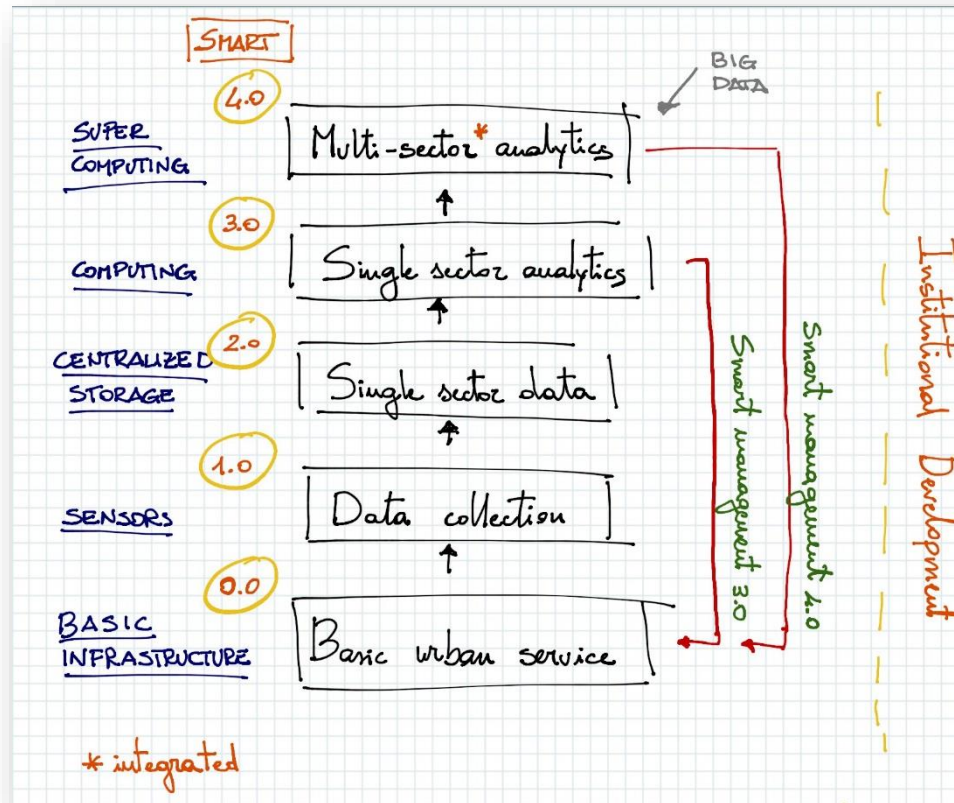 SMART
4.0
BIG
DATA
SUPER
COMPUTING
Multi-sector* analytics
3.0
COMPUTING
Single sector analytics
2.0
CENTRALIZED
STORAGE
Single sector data
1.0
SENSORS
Data collection
0.0
BASIC
INFRASTRUCTURE
Basic urban service
Smart management 3.0
Smart management 4.0
Institutional Development
* integrated